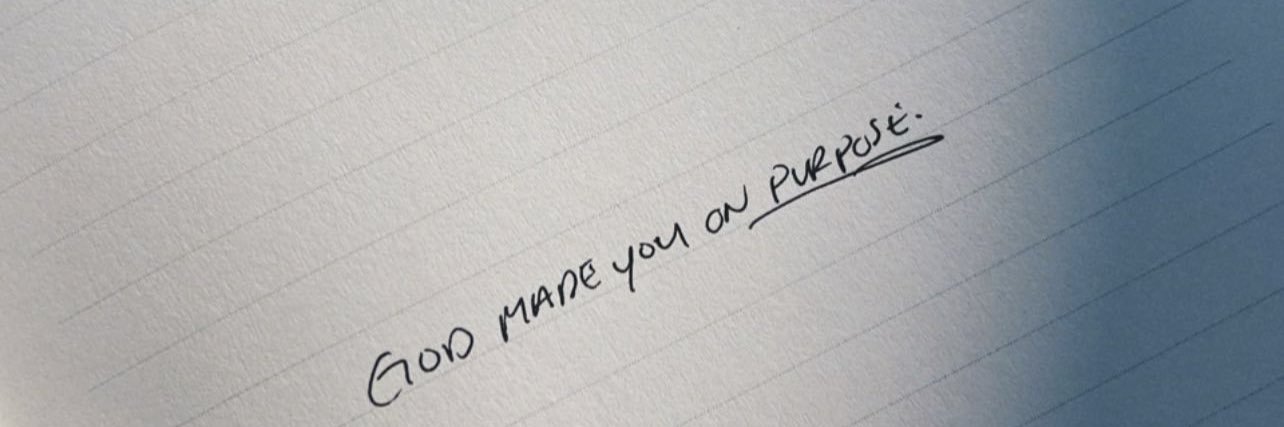 GOD MADE YOU ON PURPOSE.